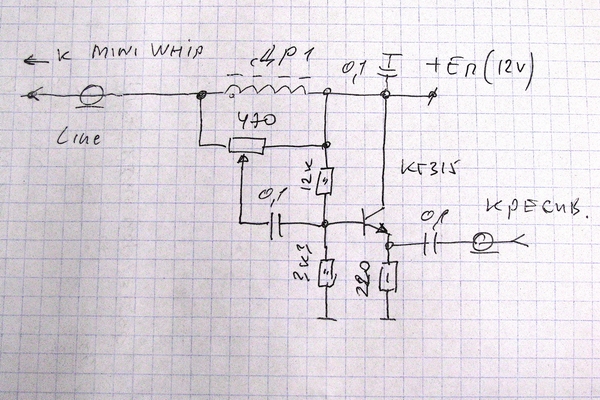 ← К MINI WHIP
ДР1
0,1
+ Еп (12V)
Line
470
12К
КТ315
0,1
0,1
К РЕСИВ.
3К3
220